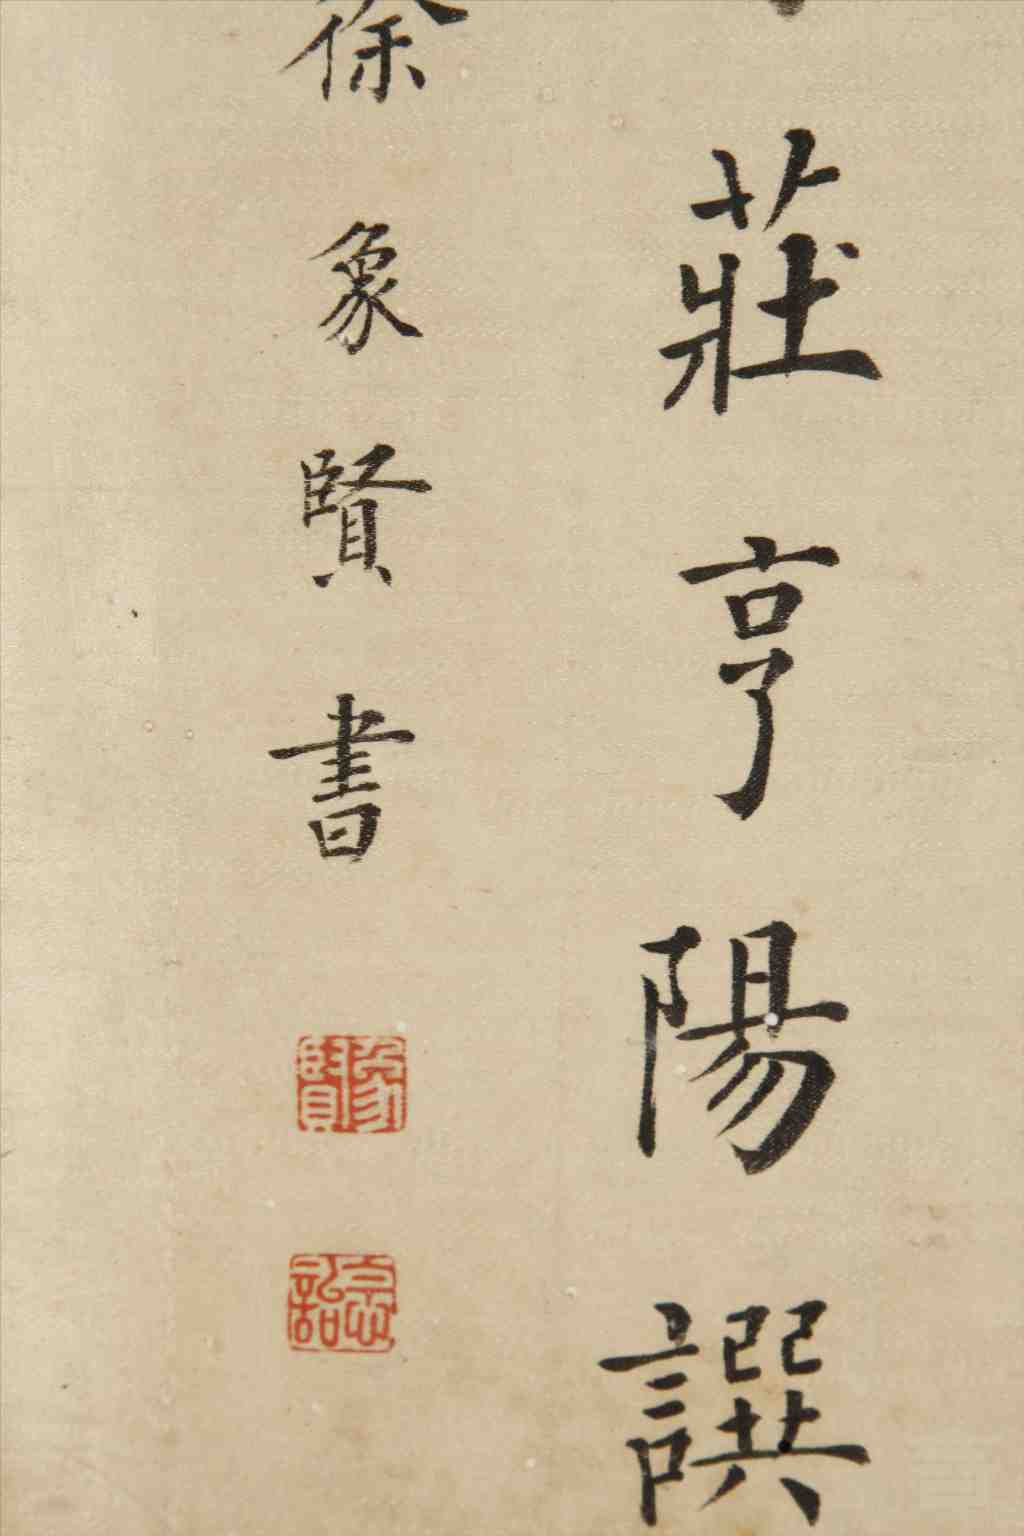 莊亨陽譔
徐象賢書
象賢